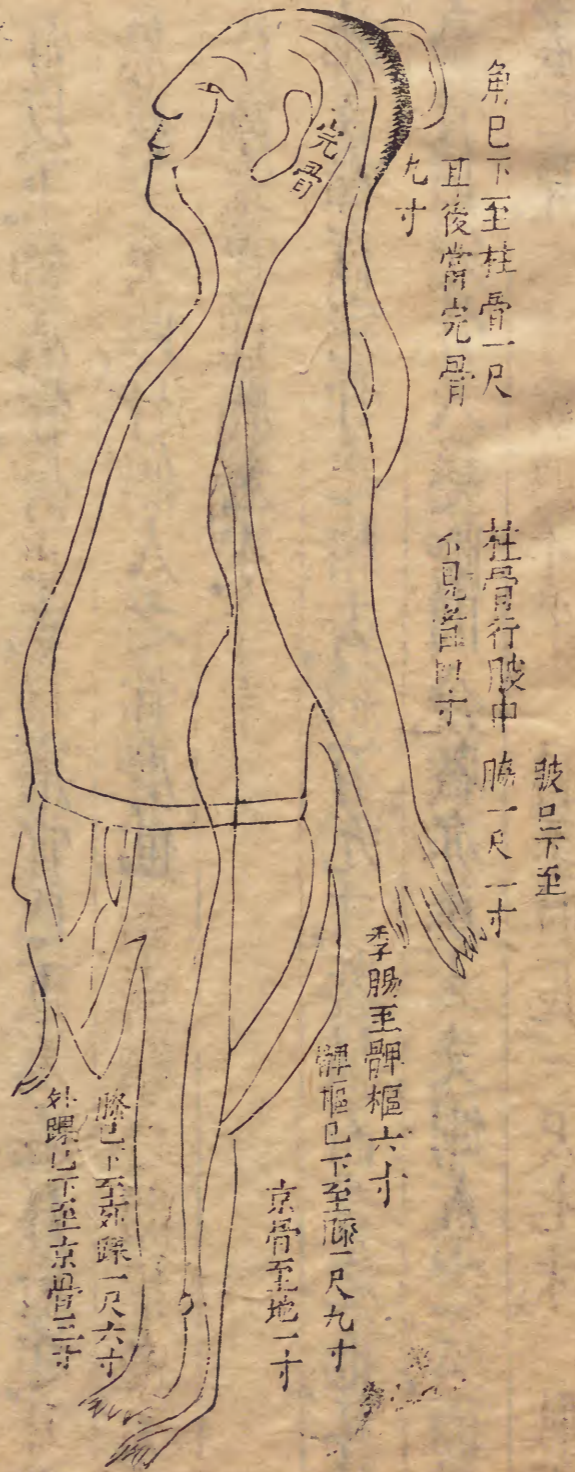 角巳下至柱骨一尺
耳後當完骨
九寸
完骨
柱骨行腋中
不見者四寸
腋巳下至
脇一尺二寸
季脇至髀樞六寸
髀樞巳下至膝一尺九寸
京骨至地一寸
膝巳下至外踝一尺六寸
外踝巳下至京骨三寸